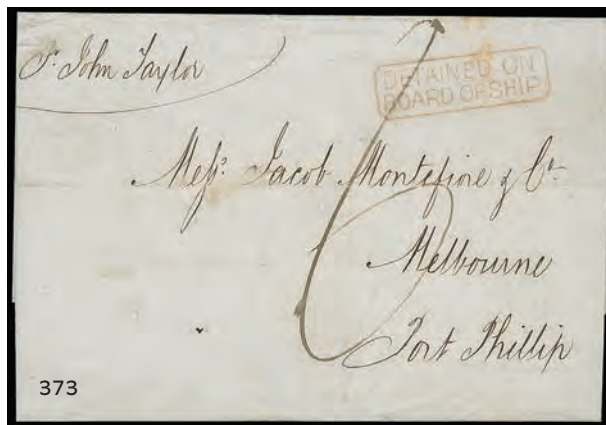 Pr. John Taylor
DETAINED ON
BOARD OF SHIP
Messrs. Jacob Montefiore & Co.
6
Melbourne
Port Phillip
373